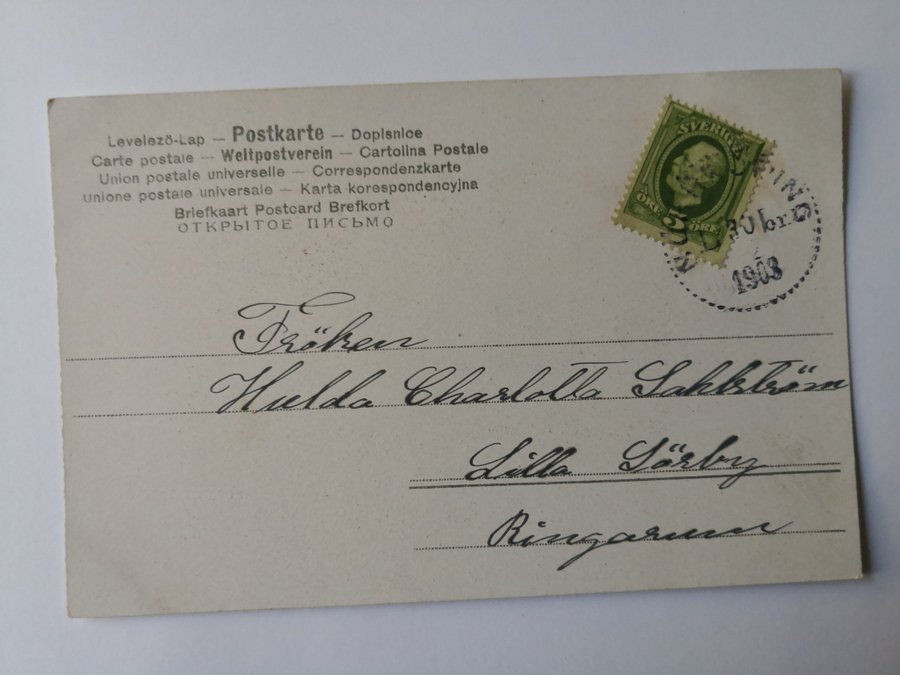 Levelező-Lap – Postkarte – Dopisnice
Carte postale – Weltpostverein – Cartolina Postale
Union postale universelle – Correspondenzkarte
Unione postale universale – Karta korespondencyjna
Briefkaart Postcard Brefkort
ОТКРЫТОЕ ПИСЬМО
SVERIGE
ÖRE 5 ÖRE
1903
Fröken
Hulda Charlotta Sahlström
Lilla Sörby
Ringarum